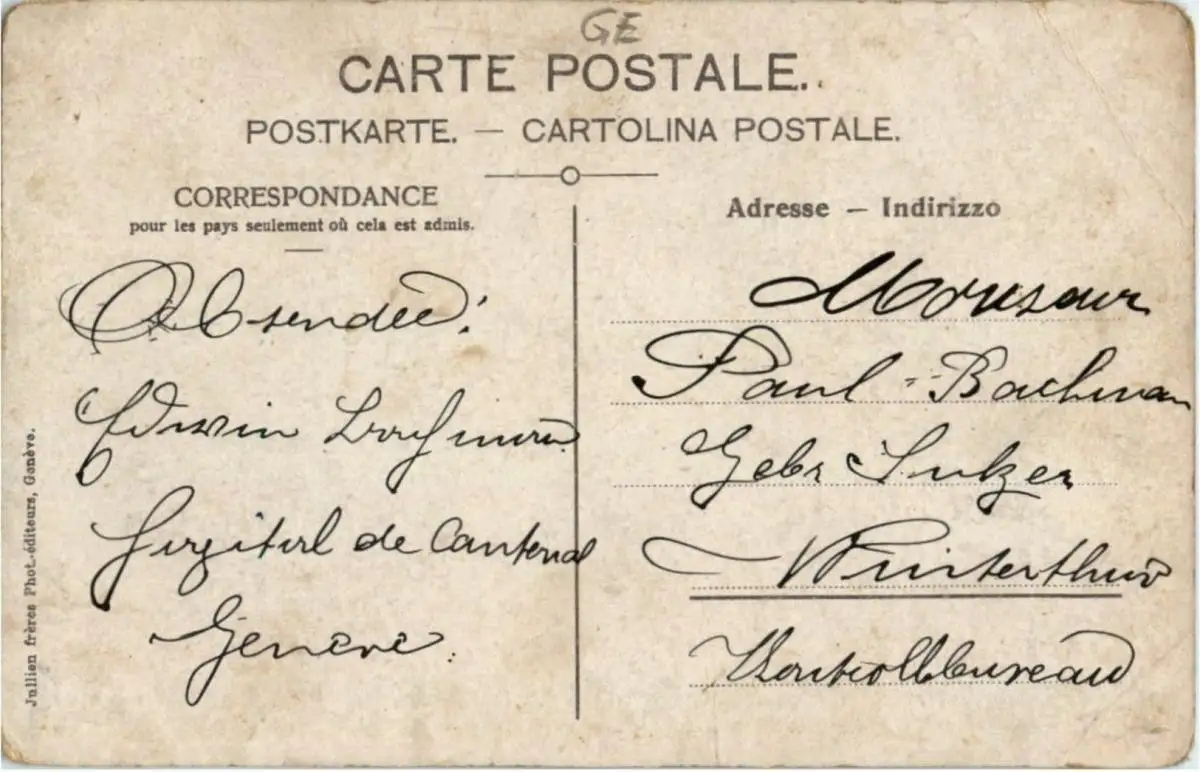 GE
CARTE POSTALE.
POSTKARTE. — CARTOLINA POSTALE.
CORRESPONDANCE
pour les pays seulement où cela est admis.
Absender:
Edwin Bachmann
Hospital de Cantonal
Genève.
Adresse — Indirizzo
Monsieur
Paul - Bachman
Gebr Sulzer
Winterthur
Kontrollbureau
Jullien frères Phot.-éditeurs, Genève.